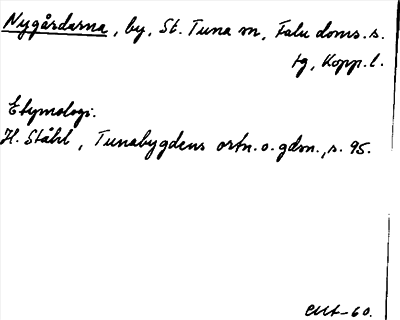 Nygårdarna, by, St. Tuna sn, Falu doms.s.
tg, Kopp.l.
Etymologi.
H. Ståhl, Tunabygdens ortn. o. gdsn., s. 95.